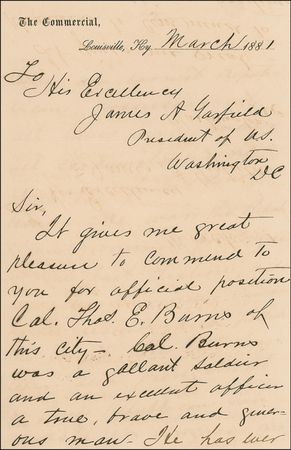 The Commercial,
Louisville, Ky. March 1881
To
His Excellency
James A Garfield
President of U.S.
Washington
DC
Sir,
It gives me great
pleasure to commend to
you for official position
Col. Thos. E. Burns of
this city — Col. Burns
was a gallant soldier
and an excellent officer
a true, brave and gener-
ous man — He has ever